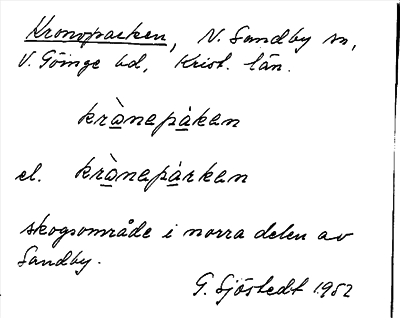 Kronoparken, N. Sandby sn,
V. Göinge hd, Krist. län.
krå̱̀nepǻ̱ken
el. krå̱̀nepǻ̱rken
skogsområde i norra delen av
Sandby.
G. Sjöstedt 1952